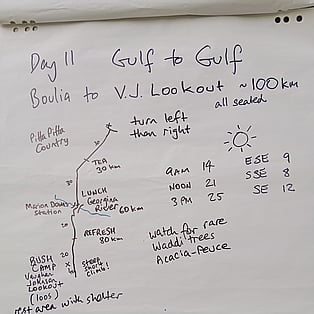 Day 11 Gulf to Gulf
Boulia to V.J. Lookout ~100km
all sealed
turn left
then right
Pitta Pitta
Country
TEA
30 km
30
LUNCH
Georgina
River 60 km
Marion Downs
Station
20
REFRESH
80 km
20
BUSH
CAMP
Vaughan
Johnson
Lookout
(loos)
rest area with shelter
Steep
Short
Climb!
9AM 14 ESE 9
NOON 21 SSE 8
3PM 25 SE 12
watch for rare
Waddi trees
Acacia-Peuce